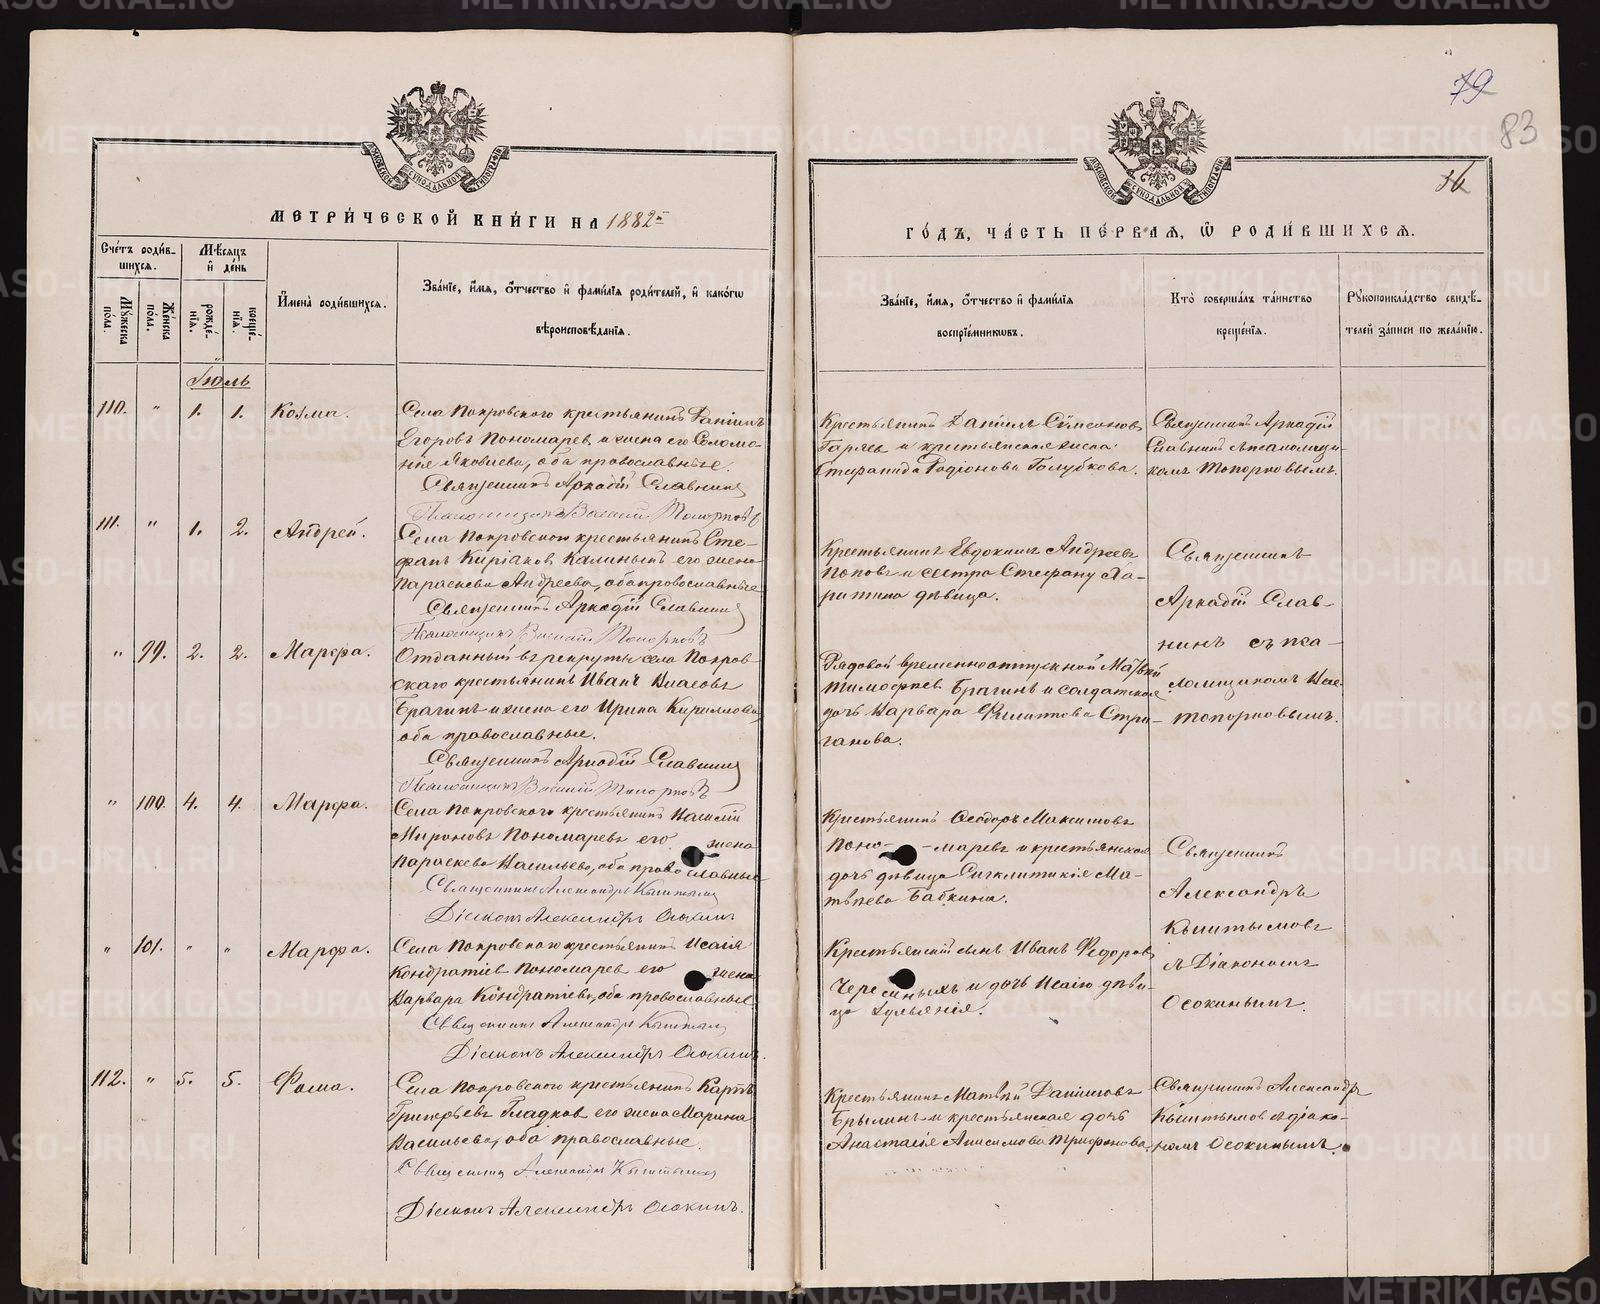 79
83
36
МЕТРИ́ЧЕСКОЙ КНИ́ГИ НА 1882-й
ГО́ДЪ, ЧА́СТЬ ПЕ́РВАЯ, Ѽ РОДИ́ВШИХСЯ.
Сче́тъ роди́в-
шихся.
Мѣ́сяцъ
и҆ де́нь
Мꙋ́жеска
по́ла.
Же́нска
по́ла.
рожде́-
нїѧ.
креще́-
нїѧ.
И҆мена̀ роди́вшихся.
Зва́нїе, и҆́мя, ѻ҆́тчество и҆ фами́лїя роди́телей, и҆ како́гѡ
вѣроисповѣ́данїя.
Зва́нїе, и҆́мя, ѻ҆́тчество и҆ фами́лїя
воспрїе́мниковъ.
Кто̀ соверша́лъ та́инство
креще́нїя.
Рꙋкоприкла́дство свидѣ́-
телей за́писи по жела́нїю.
Іюль
110. " 1. 1. Козма.
Села Покровского крестьянинъ Даніилъ
Егоровъ Пономарев и жена его Соломо-
нія Яковлева, оба православные.
Священникъ Аркадій Славнин
Псаломщикъ Василій Топорковъ
Крестьянинъ Даніилъ Симеоновъ
Гаряев и крестьянская жена
Стефанида Родіонова Голубкова.
Священникъ Аркадій
Славнинъ съ псаломщи-
комъ Топорковымъ.
111. " 1. 2. Андрей.
Села Покровского крестьянинъ Сте-
фанъ Киріаков Калиныхъ его жена
Параскева Андреева, оба православные
Священникъ Аркадій Славнин
Псаломщикъ Василій Топорковъ
Крестьянинъ Евдокимъ Андреевъ
Поповъ и сестра Стефану Ха-
ритина дѣвица.
Священникъ
Аркадій Слав-
нинъ съ пса-
ломщикомъ Вас.
Топорковымъ.
" 99. 2. 2. Марфа.
Отданный въ рекруты села Покров-
скаго крестьянинъ Иванъ Власовъ
Брагинъ и жена его Ирина Кириллова,
оба православные.
Священникъ Аркадій Славнин
Псаломщикъ Василій Топорковъ
Рядовой временноотпускной Матвѣй
Тимофеев Брагинъ и солдатская
дочь Варвара Филиппова Стри-
ганова.
" 100. 4. 4. Марфа.
Села Покровского крестьянинъ Василій
Мироновъ Пономаревъ его жена
Параскева Васильева, оба православные
Священникъ Александръ Кыштымов
Діаконъ Александръ Осокинъ
Крестьянинъ Ѳеодоръ Максимовъ
Поно- -маревъ и крестьянская
дочь дѣвица Сигклитикія Ма-
твѣева Бабкина.
Священникъ
Александръ
Кыштымовъ
съ Діакономъ
Осокинымъ.
" 101. " " Марфа.
Села Покровского крестьянинъ Исаія
Кондратіев Пономарев его жена
Варвара Кондратіева, оба православные
Священникъ Александръ Кыштымов
Діаконъ Александръ Осокинъ.
Крестьянскій сынъ Иванъ Федоровъ
Чересиныхъ и дочь Исаію дѣви-
ца Іульянія.
112. " 5. 5. Фома.
Села Покровского крестьянинъ Карпъ
Григорьевъ Гладков его жена Марина
Васильева, оба православные.
Священникъ Александръ Кыштымов
Діаконъ Александръ Осокинъ.
Крестьянинъ Матвѣй Даниловъ
Брылинъ и крестьянская дочь
Анастасія Анисимова Трифонова.
Священникъ Александръ
Кыштымов съ діако-
номъ Осокинымъ.
METRIKI.GASO-URAL.RU